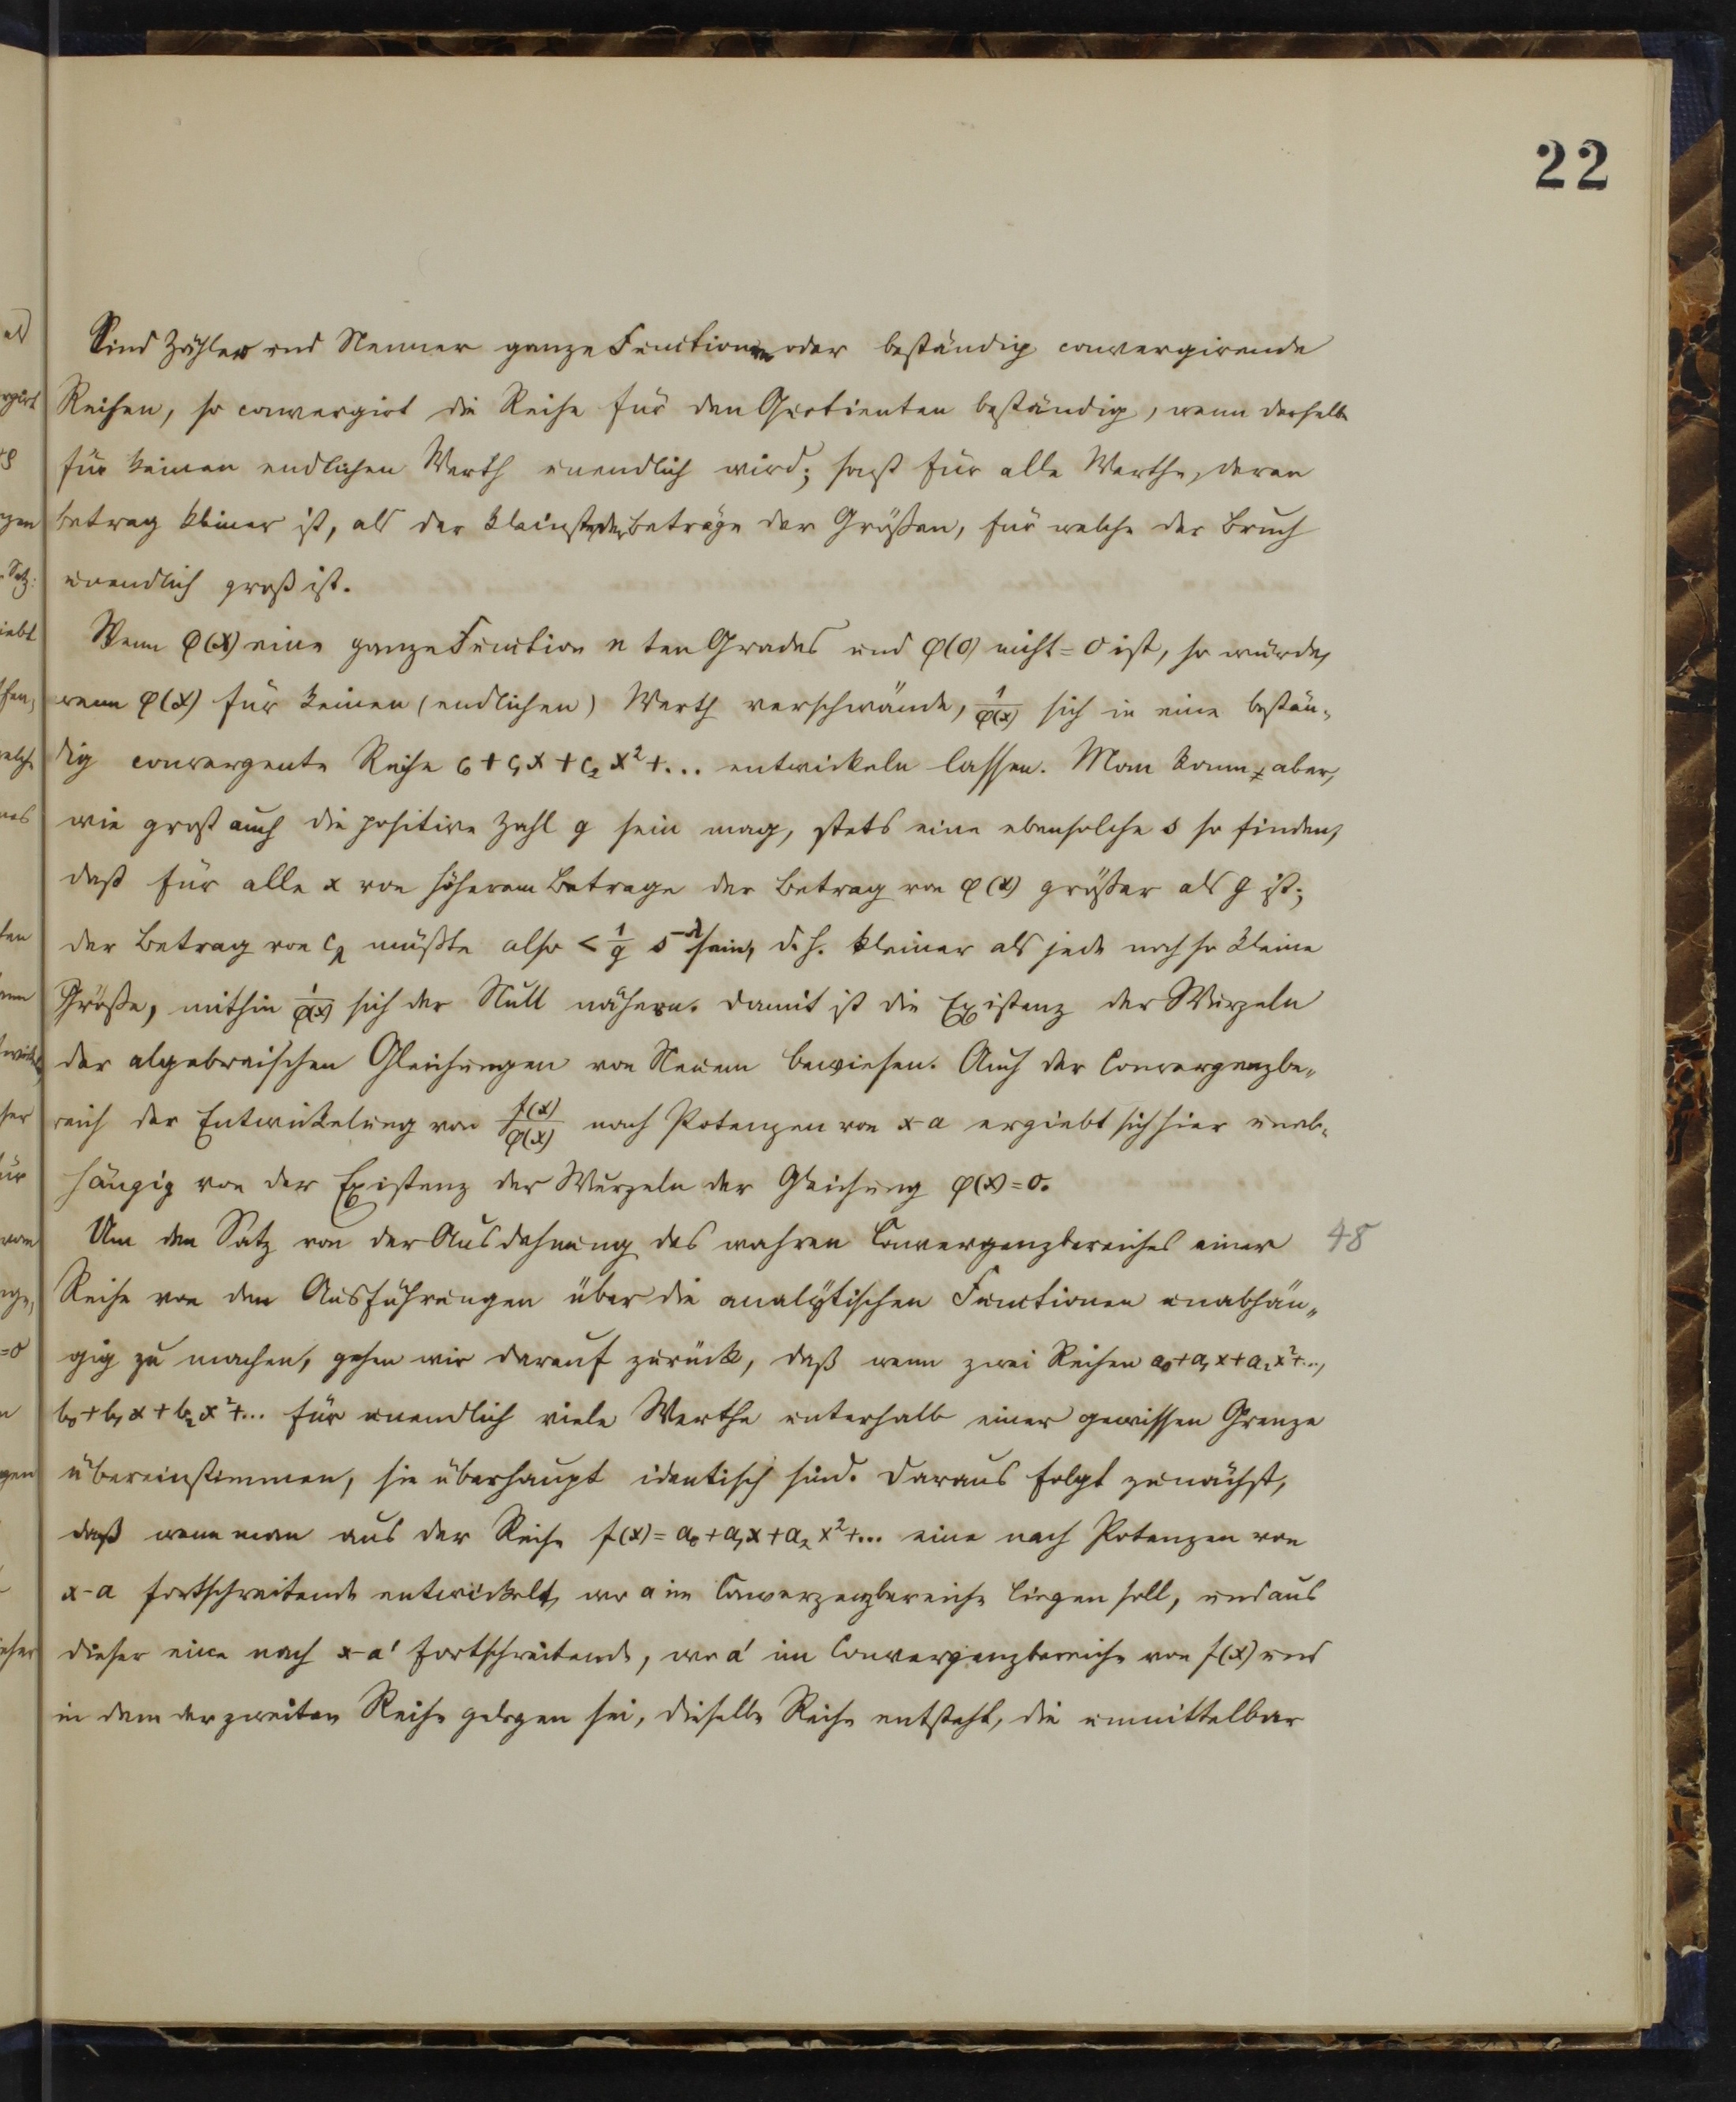 22
Sind Zähler und Nenner ganze Functionen oder beständig convergirende
Reihen, so convergirt die Reihe für den Quotienten beständig, wenn derselbe
für keinen endlichen Werth unendlich wird; sonst für alle Werthe, deren
Betrag kleiner ist, als der kleinste der Beträge der Größen, für welche der Bruch
unendlich groß ist.
Wenn φ(x) eine ganze Function n ten Grades und φ(0) nicht = 0 ist, so würde,
wenn φ(x) für keinen (endlichen) Werth verschwände, 1/φ(x) sich in eine bestän-
dig convergente Reihe c₀ + c₁x + c₂x² + ... entwickeln lassen. Man kann aber,
wie groß auch die positive Zahl g sein mag, stets eine ebensolche s so finden,
daß für alle x von höherem Betrage der Betrag von φ(x) größer als g ist;
der Betrag von c_λ müßte also < 1/g s^-λ sein, d. h. kleiner als jede noch so kleine
Größe, mithin 1/φ(x) sich der Null nähern. Damit ist die Existenz der Wurzeln
der algebraischen Gleichungen von Neuem bewiesen. Auch der Convergenzbe-
reich der Entwickelung von f(x)/φ(x) nach Potenzen von x-a ergiebt sich hier unab-
hängig von der Existenz der Wurzeln der Gleichung φ(x)=0.
Um den Satz von der Ausdehnung des wahren Convergenzbereiches einer 48
Reihe von den Ausführungen über die analytischen Functionen unabhän-
gig zu machen, gehen wir darauf zurück, daß wenn zwei Reihen a₀+a₁x+a₂x²+...,
b₀+b₁x+b₂x²+... für unendlich viele Werthe unterhalb einer gewissen Grenze
übereinstimmen, sie überhaupt identisch sind. Daraus folgt zunächst,
daß wenn man aus der Reihe f(x)=a₀+a₁x+a₂x²+... eine nach Potenzen von
x-a fortschreitende entwickelt, wo a im Convergenzbereiche liegen soll, und aus
dieser eine nach x-a' fortschreitende, wo a' im Convergenzbereiche von f(x) und
in dem der zweiten Reihe gelegen sei, dieselbe Reihe entsteht, die unmittelbar